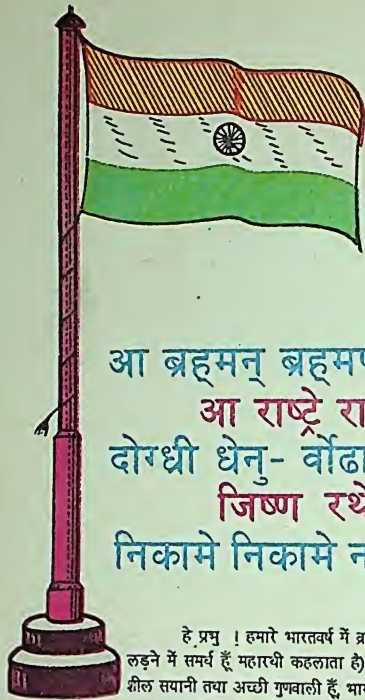 आ ब्रह्मन् ब्रह्मण
आ राष्ट्रे रा
दोग्ध्री धेनु- र्वोढा
जिष्ण रथे
निकामे निकामे न
हे प्रभु ! हमारे भारतवर्ष में ब्र
लड़ने में समर्थ हूँ महारथी कहलाता है)
शील सयानी तथा अच्छी गुणवाली हूँ, भार